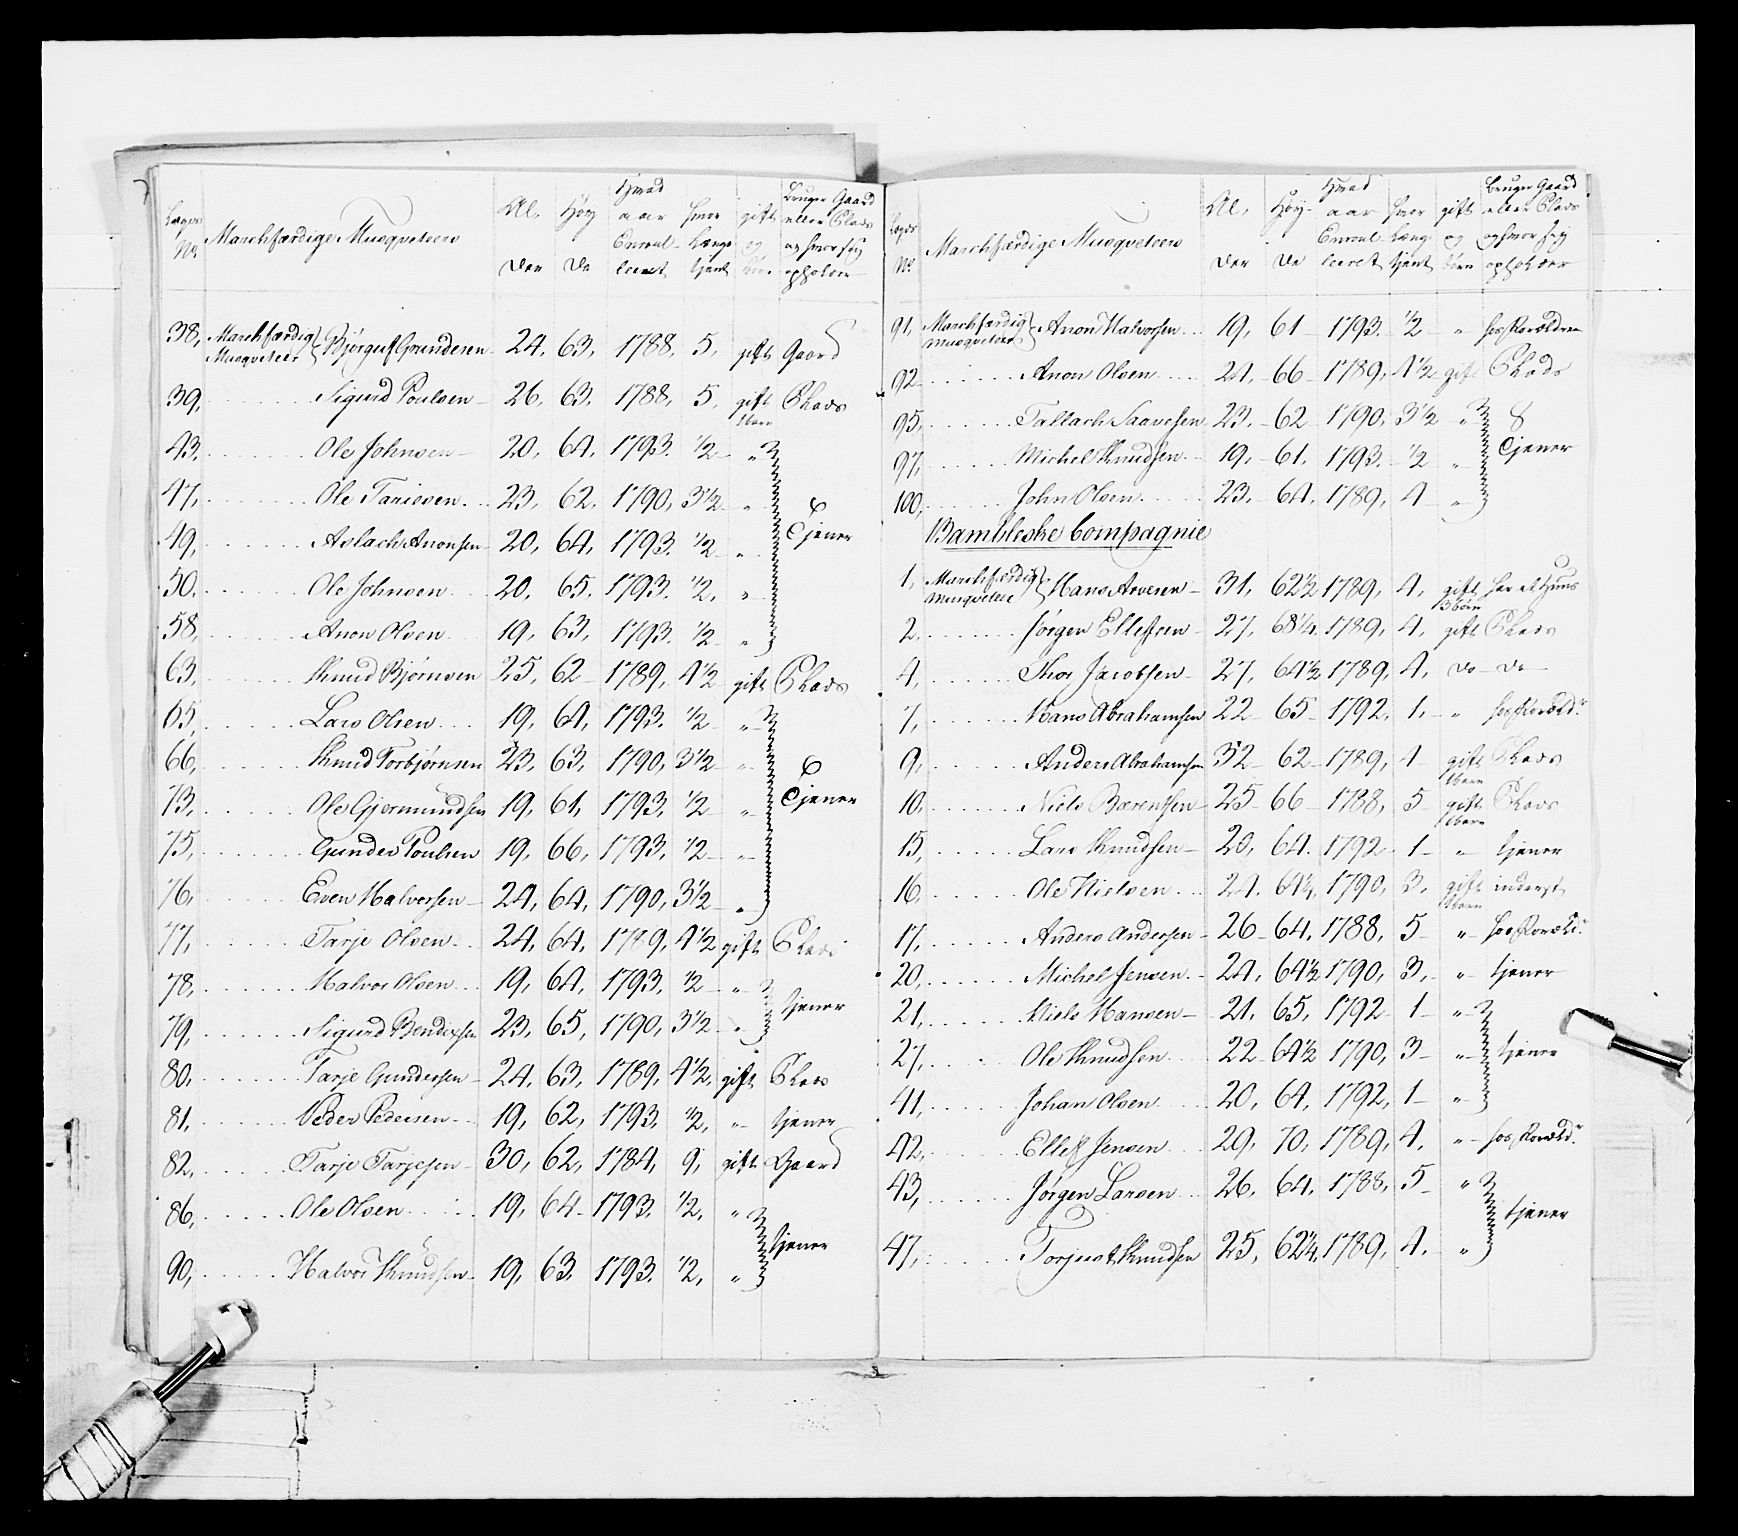 Lægds No. Marchfærdige Musqveteers Alder Høyde Hvad aar Enroulleeret hvor længe tjent gift og børn Bruger Gaard eller Plads og hvor sig opholder
38, Marchfærdig Musqveteer Bjørguf Gundersen 24, 63, 1788, 5, gift Gaard
39, Sigurd Poulsen 26, 63, 1788, 5, gift 1 barn Plads
43, Ole Johnsen 20, 64, 1793, ½ "
47, Ole Tarjesen 23, 62, 1790, 3½ "
49, Aslach Anonsen 20, 64, 1793, ½ " Tjener
50, Ole Johnsen 20, 65, 1793, ½, "
58, Anon Olsen 19, 63, 1793, ½ "
63, Knud Bjørnsen 25, 62 1789, 4½ gift Plads
65, Lars Olsen 19, 64, 1793, ½ "
66, Knud Torbjørnsen 23, 63, 1790, 3½ "
73, Ole Gjermundsen 19, 61, 1793, ½ " Tjener
75, Gunder Poulsen 19, 66, 1793, ½ "
76, Even Halvorsen 24, 64, 1790, 3½ "
77, Tarje Olsen 24, 64, 1789, 4½ gift Plads
78, Halvor Olsen 19, 64, 1793, ½ "
79, Sigurd Bendixsen 23, 65, 1790, 3½ " tjener
80, Tarje Gundersen 24, 63, 1789, 4½, gift Plads
81, Peder Pedersen 19, 62, 1793, ½, " tjener
82, Tarje Tarjesen 30, 62, 1784, 9, gift Gaard
86, Ole Olsen 19, 64 1793, ½, "
90, Halvor Knudsen 19, 63, 1793, ½, " tjener
Lægds No. Marchfærdige Musqveteers Alder Høyde Hvad aar Enroulleeret hvor længe tjent gift og børn Bruger Gaard eller Plads og hvor sig opholder
91, Marchfærdig Musqveteer Anon Halvorsen 19, 61 1793, ½ " hos Forældren
92 Anon Olsen 24, 66 1789, 4½ gift Plads
95, Tallach Saavesen 23, 62 1790, 3½ "
97, Michel Knudsen 19, 61, 1793, ½ " Tjener
100, John Olsen 23, 64, 1789, 4 "
Bambleske Compagnie
1, Marchfærdig Musqveteer Hans Arvesen 31, 62½ 1789, 4, gift 3 børn har et Huus
2, Jørgen Ellefsen 27, 68¼, 1789, 4, gift Plads
4, Thor Jacobsen 27, 64½ 1789, 4, do do
7, Hans Abrahamsen 22 65 1792, 1, " hos Foræld:
9, Anders Abrahamsen 32 62 1789, 4 gift 1 barn Plads
10, Niels Bærentsen 25 66 1788, 5 gift 1 barn Plads
15, Lars Knudsen 20, 64, 1792 1 " tjener
16, Ole Nielsen 24, 64¼, 1790, 3, gift 1 barn inderst
17, Anders Andersen 26 64, 1788, 5 " hos Foræld:
20, Michel Jensen 24, 64½ 1790, 3, " tjener
21, Niels Hansen 21, 65, 1792 1 "
27, Ole Knudsen 22 64½ 1790, 3 " tjener
41, Johan Olsen 20, 64, 1792, 1 "
42, Ellef Jensen 29, 70, 1789, 4, " hos Foræld:
43, Jørgen Larsen 26, 64, 1788, 5 "
tjener
47, Torjus Knudsen 25, 62¼, 1789, 4, "